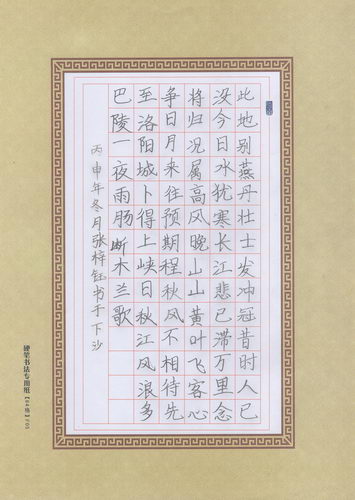 此地别燕丹壮士发冲冠昔时人已
没今日水犹寒长江悲已滞万里念
将归况属高风晚山山黄叶飞客心
争日月来往预期程秋风不相待先
至洛阳城卜得上峡日秋江风浪多
巴陵一夜雨肠断木兰歌
丙申年冬月张梓钰书于下沙
硬笔书法专用纸【84格】F05